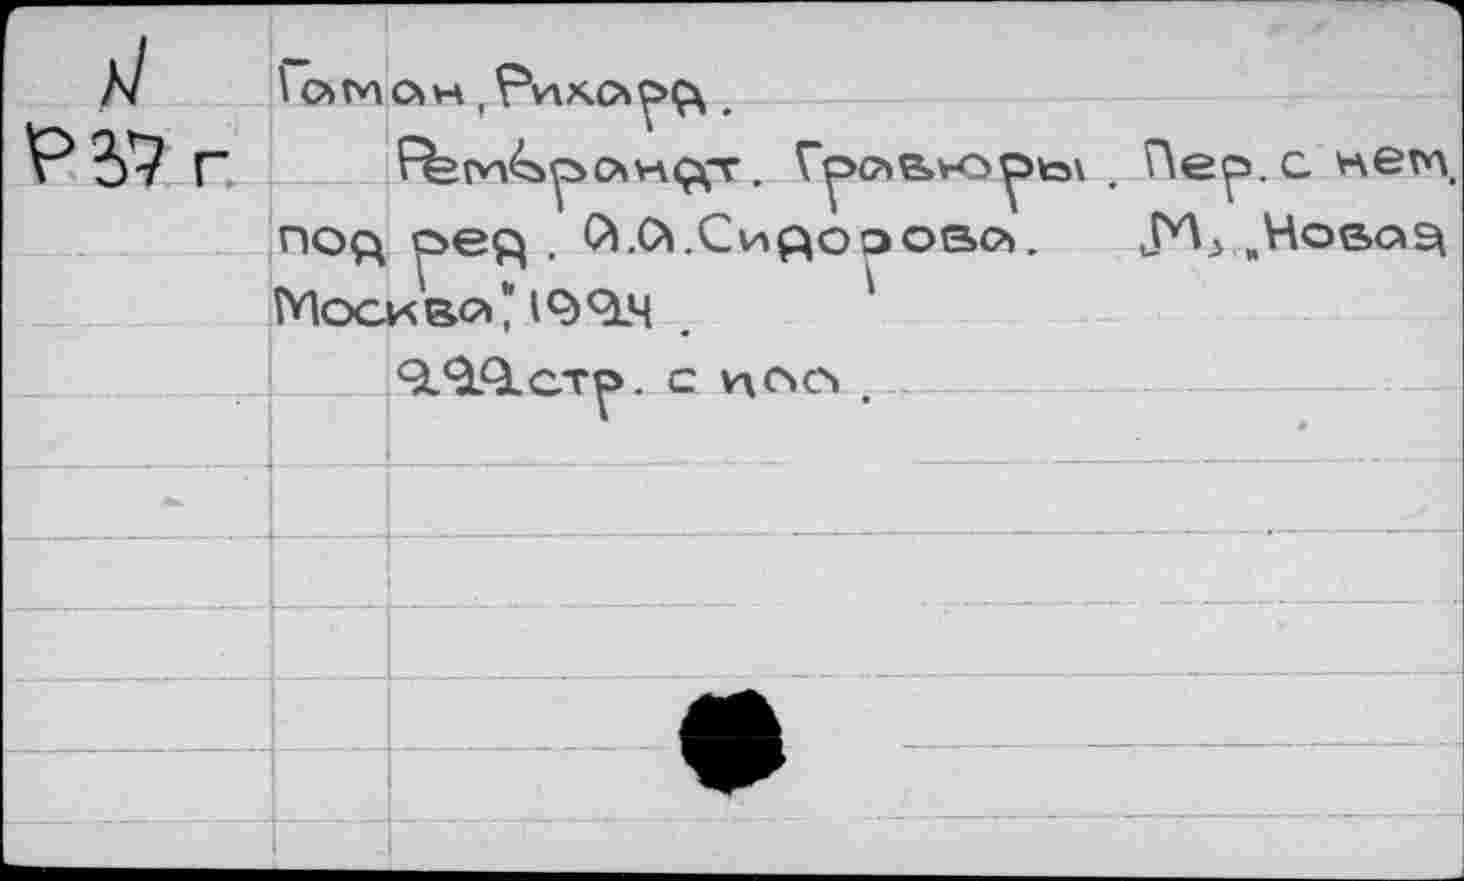 N Гаман, Рихард.
R37 г Рембрандт. Гравюры. Пер. с нем.
под ред. А.А.Сидорова. М., „Новая
Москва", 1924.
222стр. с илл.